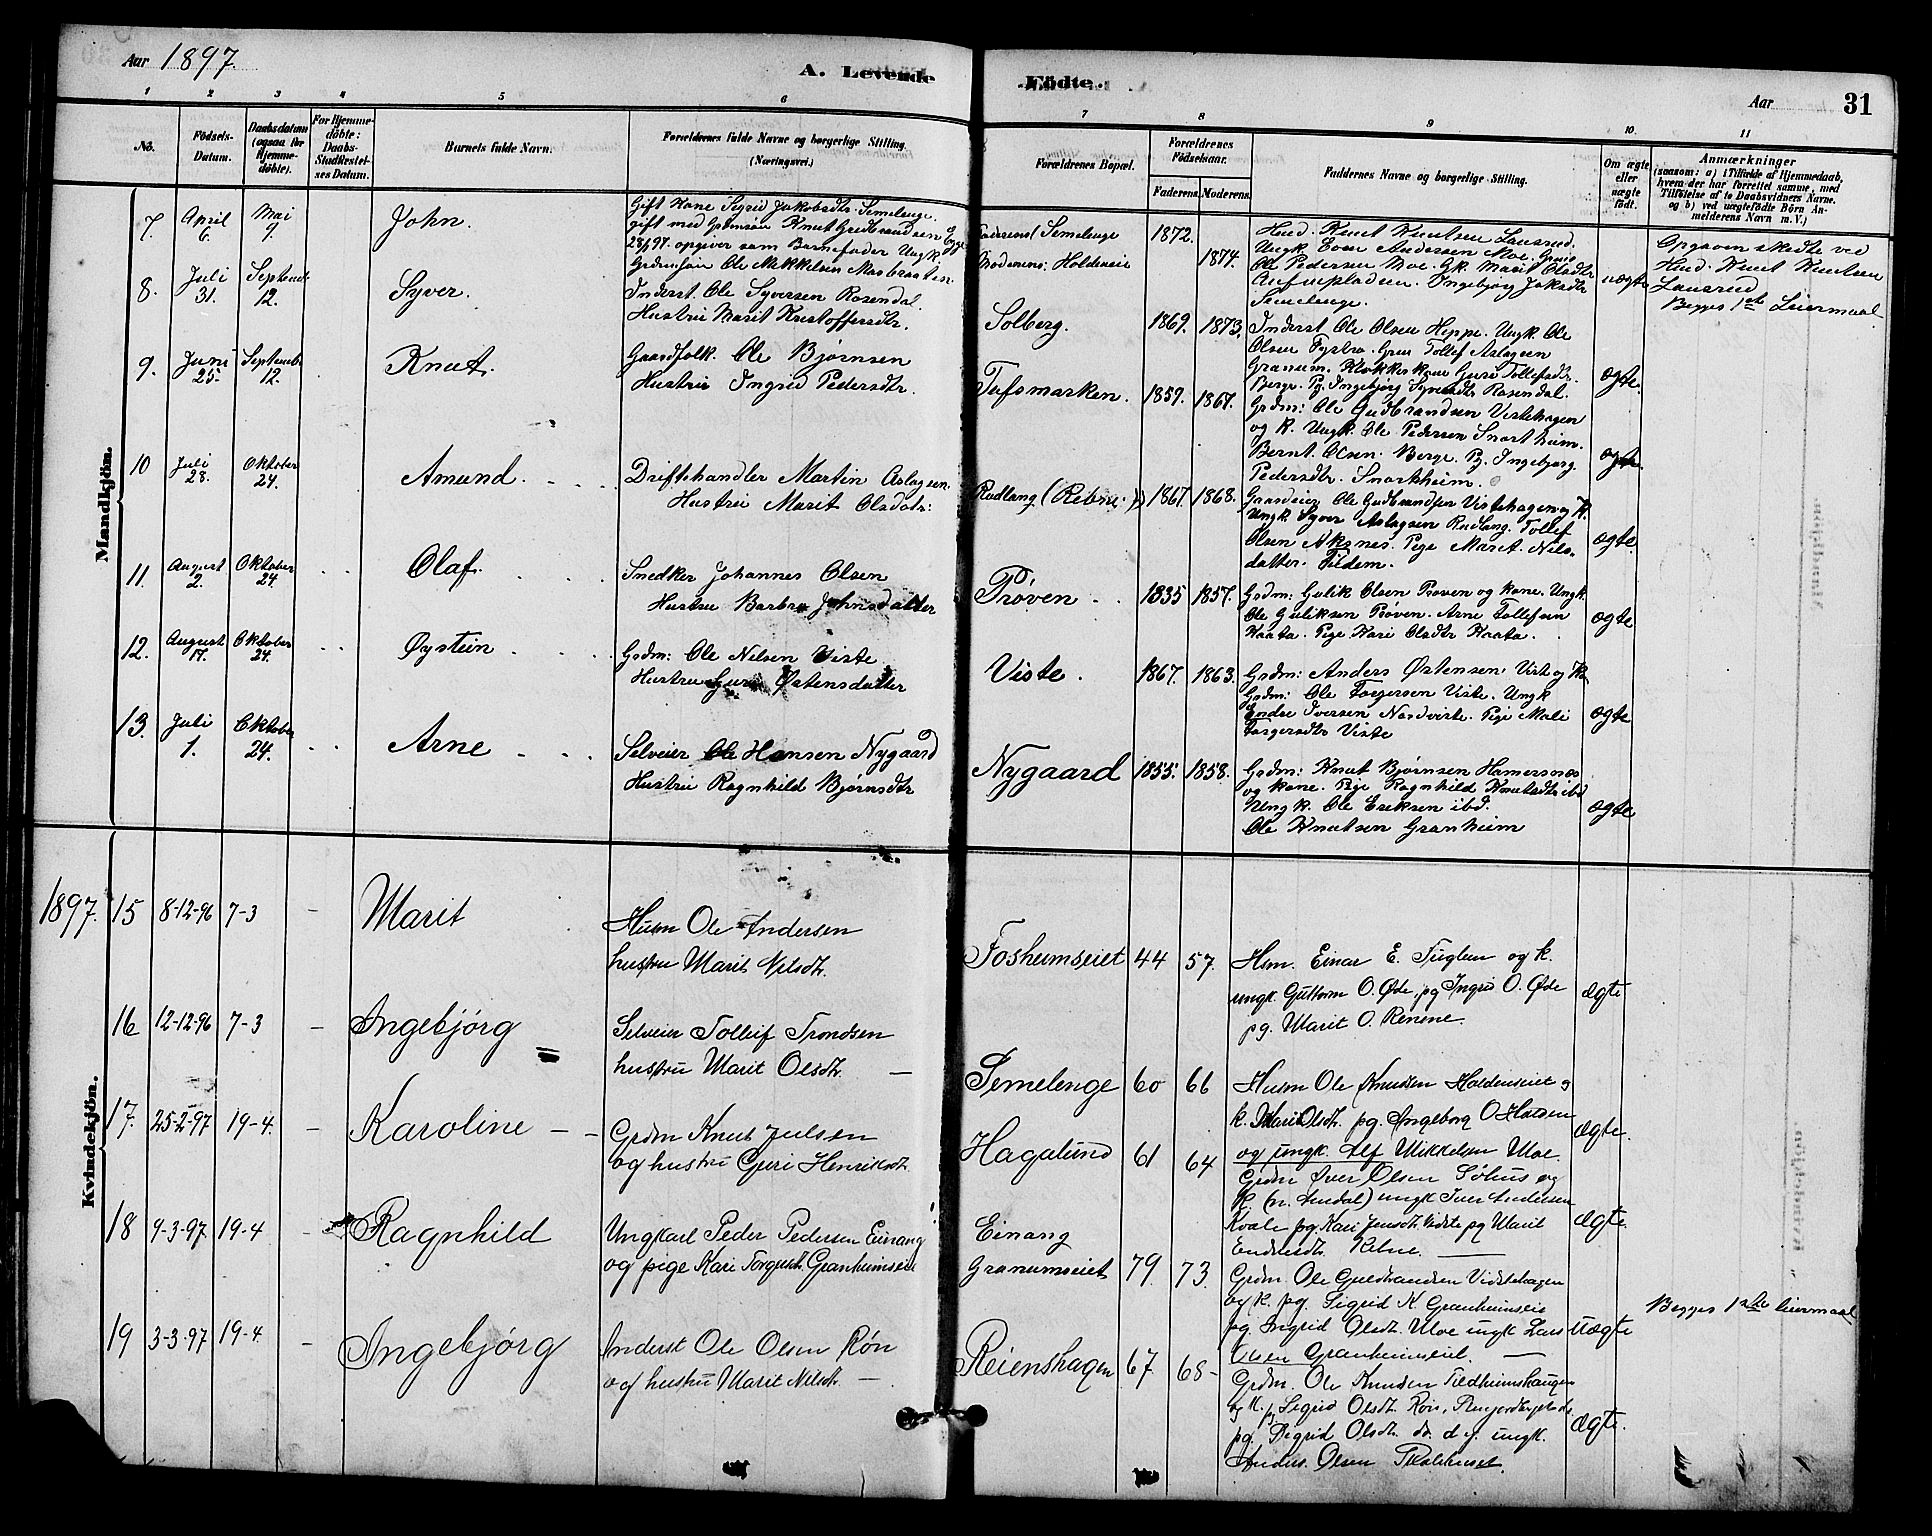 Aar 1897.
A. Levende Födte.
Aar
31
1 2 3 4 5 6 7 8 9 10 11
No.
Födsels-Datum.
Daabsdatum (ogsaa for Hjemme-döbte).
For Hjemme-döbte: Daabs-Stadfæstel-ses Datum.
Barnets fulde Navn.
Forældrenes fulde Navne og borgerlige Stilling. (Næringsvei.)
Forældrenes Bopæl.
Forældrenes Födselsaar.
Faderens. Moderens.
Faddernes Navne og borgerlige Stilling.
Om ægte eller uægte födt.
Anmærkninger
(saasom: a) i Tilfælde af Hjemmedaab,
hvem der har forrettet samme, med
Tilföielse af to Daabsvidners Navne.
og b) ved uægtefödte Börn An-
melderens Navn m. V.)
Mandkjön.
7. April 6. Mai 9. John.
Gift Kone Sigrid Jakobsdtr. Semelenge.
gift med Grdmsøn Knut Gudbrandsen
28/6 97. opgiver som Barnefader Ungk.
Grdmsøn Ole Mikkelsen
Faderens: Semelenge 1872.
Moderens: Holdeneie 1874.
Husd. Knut Knutsen Lausrud.
Ungk. Sven Andersen Moe.
Ole Pedersen Moe. Gk. Marit Olsdtr.
Ingebjørg Jaksdtr
Semelenge.
uægte
Opgaven skedte ved
Husd. Knut Knutsen
Lausrud
Begges 1ste Leiermaal.
8. Juli 31. Septemb. 12. Syver.
Inderst. Ole Syversen Rosendal.
Hustru Marit Kristoffersdtr.
Solberg. 1869. 1873.
Inderst Ole Olsen Hippe. Ungk. Ole
Olsen Fystro. Grm Tollef Aslagsen
Granum. Klokkerkone Guri Tollefsdtr.
Berge. Pg. Ingebjørg Syversdtr Rosendal.
ægte.
9. Juni 25. Septemb. 12. Knut.
Gaardfolk. Ole Bjørnsen
Hustru Ingrid Pedersdtr.
Tufsmarken. 1859. 1867.
Grdm: Ole Gudbrandsen Vistehagen
og K. Ungk. Ole Pedersen Snortheim.
Bernt Olsen. Berge. Pg. Ingebjørg
Pedersdtr. Snortheim.
ægte.
10 Juli 28. Oktober 24. Amund.
Driftshandler Martin Aslagsen.
Hustru Marit Olsdatr:
Rudlang (Rebne) 1867. 1868.
Gaardeier Ole Gudbrandsen Vistehagen og K.
Ungk. Syver Aslagsen Rudlang. Tollef
Olsen Aksnes. Pige Marit Nils-
datter. Tildem.
ægte.
11. August 2. Oktober 24. Olaf.
Snedker Johannes Olsen
Hustru Barbra Johnsdatter
Prøven 1835 1857.
Grdm: Gulik Olsen Prøven og kone. Ungk.
Ole Guliksen Prøven. Arne Tollefsen
Kaata. Pige Kari Olsdtr Kaata.
ægte
12. August 17. Oktober 24. Øystein
Grdm: Ole Nilsen Viste.
Hustru Guri Østensdatter
Viste. 1867. 1863.
Grdm: Anders Østensen Viste og K.
Grdm: Ole Torgersen Viste. Ungk
Endre Iversen Nordviste. Pige Mali
Torgersdtr Viste
ægte
13. Juli 1. Oktober 24. Arne
Selveier Ole Hansen Nygaard
Hustru Ragnhild Bjørnsdtr
Nygaard 1855. 1858.
Grdm: Knut Bjørnsen Hamersnæs
og kone. Pige Ragnhild Knutsdtr ibd
Ungk. Ole Eriksen ibd.
Ole Knutsen Granheim
ægte
Kvindekjön.
1897. 15 8-12-96 7-3 - Marit
Husm Ole Andersen
hustru Marit Nilsdtr.
Fosheimseiet 44 57.
Hsm. Einar E. Fuglem og k.
ungk. Guttorm O. Øde, pg Ingrid O. Øde
pg. Marit O. Renene.
ægte
16 12-12-96 7-3 - Ingebjørg
Selveier Tolleif Trondsen
hustru Marit Olsdtr. -
Semelenge 60 66
Husm Ole Knudsen Holdenseiet og
k. Marit Olsdtr. pg. Ingeborg O Hansen
og ungk. Alf Mikkelsen Moe.
ægte.
17. 25-2-97 19-4. - Karoline
Grdm Knut Julsen
og hustru Guri Henriksdtr.
Hagalund 61 64
Grdm Iver Olsen Søhus og
K. (n. Aurdal) ungk Iver Andersen
Kvale pg Kari Jensdtr. Vidste pg Marit
Endresdtr. Rebne.
ægte.
18 9-3-97 19-4 - Ragnhild
Ungkarl Peder Pedersen Einang
og pige Kari Torgersdtr. Granheimseie
Einang
Granumseiet 79. 73.
Grdm. Ole Guldbrandsen Vidstehagen
og k. pg. Sigrid K. Granheimseie
pg. Ingrid Olsdtr. Moe ungk Lars
Olsen Granheimseiet.
uægte
Begges 1ste leiermaal
19 3-3-97 19-4 - Ingebjørg
Inderst Ole Olsen Røn
og hustru Marit Nilsdtr. -
Reienshagen 67. 68-
Grdm. Ole Knudsen Tildheimshaugen
og k. pg Sigrid Olsdtr. Røn,
pg. Sigrid Olsdtr. do. d.y. ungk.
Anders. Olsen
ægte.